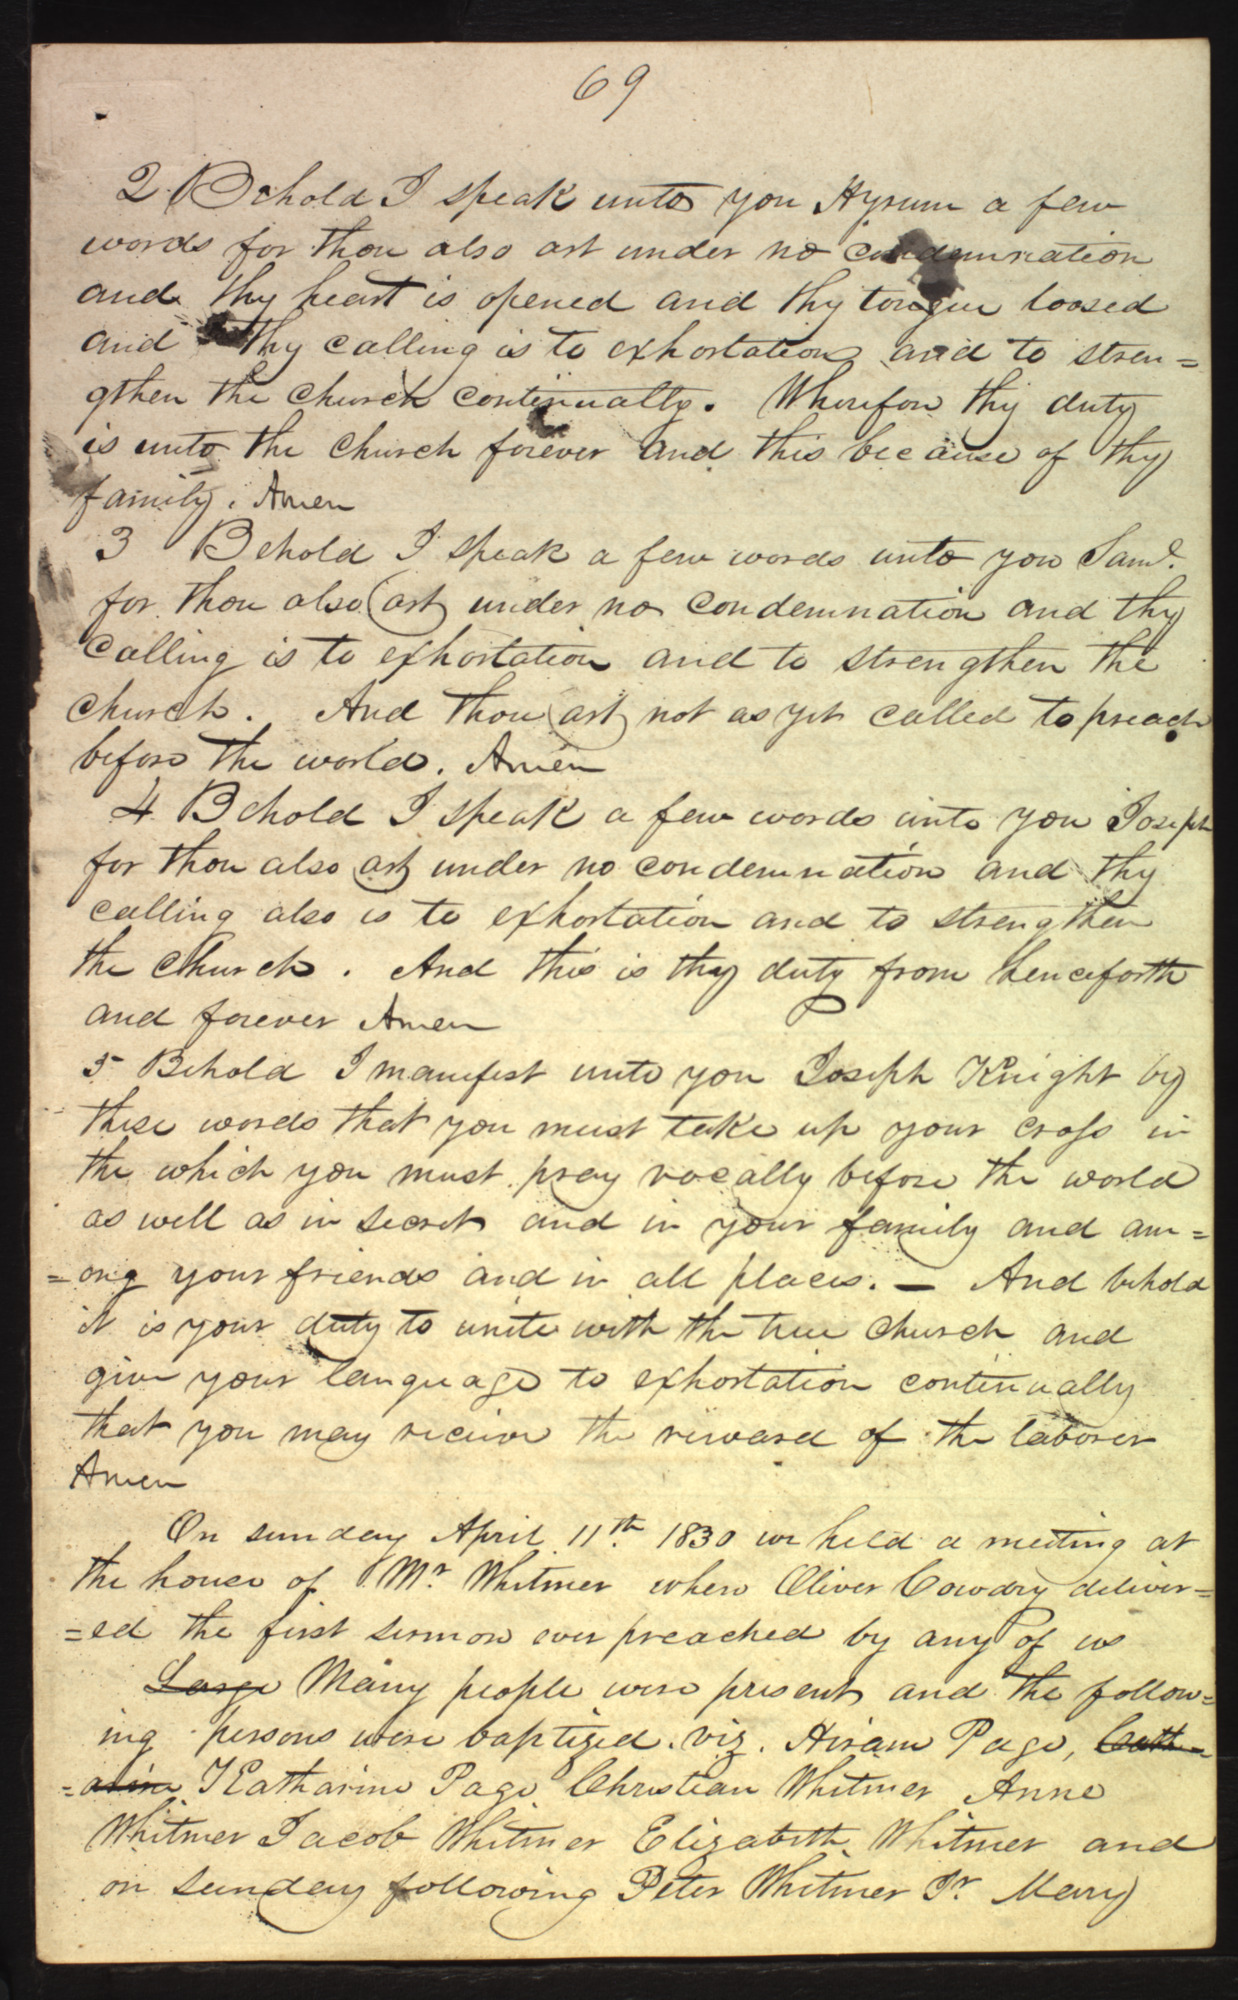 69
2 Behold I speak unto you Hyrum a few
words for thou also art under no condemnation
and thy heart is opened and thy tongue loosed
and thy calling is to exhortation and to stren=
gthen the church continually. Wherefore thy duty
is unto the church forever and this because of thy
family. Amen
3 Behold I speak a few words unto you Saml.
for thou also art under no condemnation and thy
calling is to exhortation and to strengthen the
church. And thou art not as yet called to preach
before the world. Amen
4 Behold I speak a few words unto you Joseph
for thou also art under no condemnation and thy
calling also is to exhortation and to strengthen
the church. And this is thy duty from henceforth
and forever Amen
5 Behold I manifest unto you Joseph Knight by
these words that you must take up your cross in
the which you must pray vocally before the world
as well as in secret and in your family and am=
=ong your friends and in all places. — And behold
it is your duty to unite with the true church and
give your language to exhortation continually
that you may recieve the reward of the laborer
Amen
On sunday April 11th. 1830 we held a meeting at
the house of Mr. Whitmer where Oliver Cowdry deliver=
=ed the first sermon ever preached by any of us
Large Many people were present and the follow=
ing persons were baptized. viz. Hiram Page, Cath=
=arine Katharine Page Christian Whitmer Anne
Whitmer Jacob Whitmer Elizabeth Whitmer and
on sunday following Peter Whitmer Jr. Mary